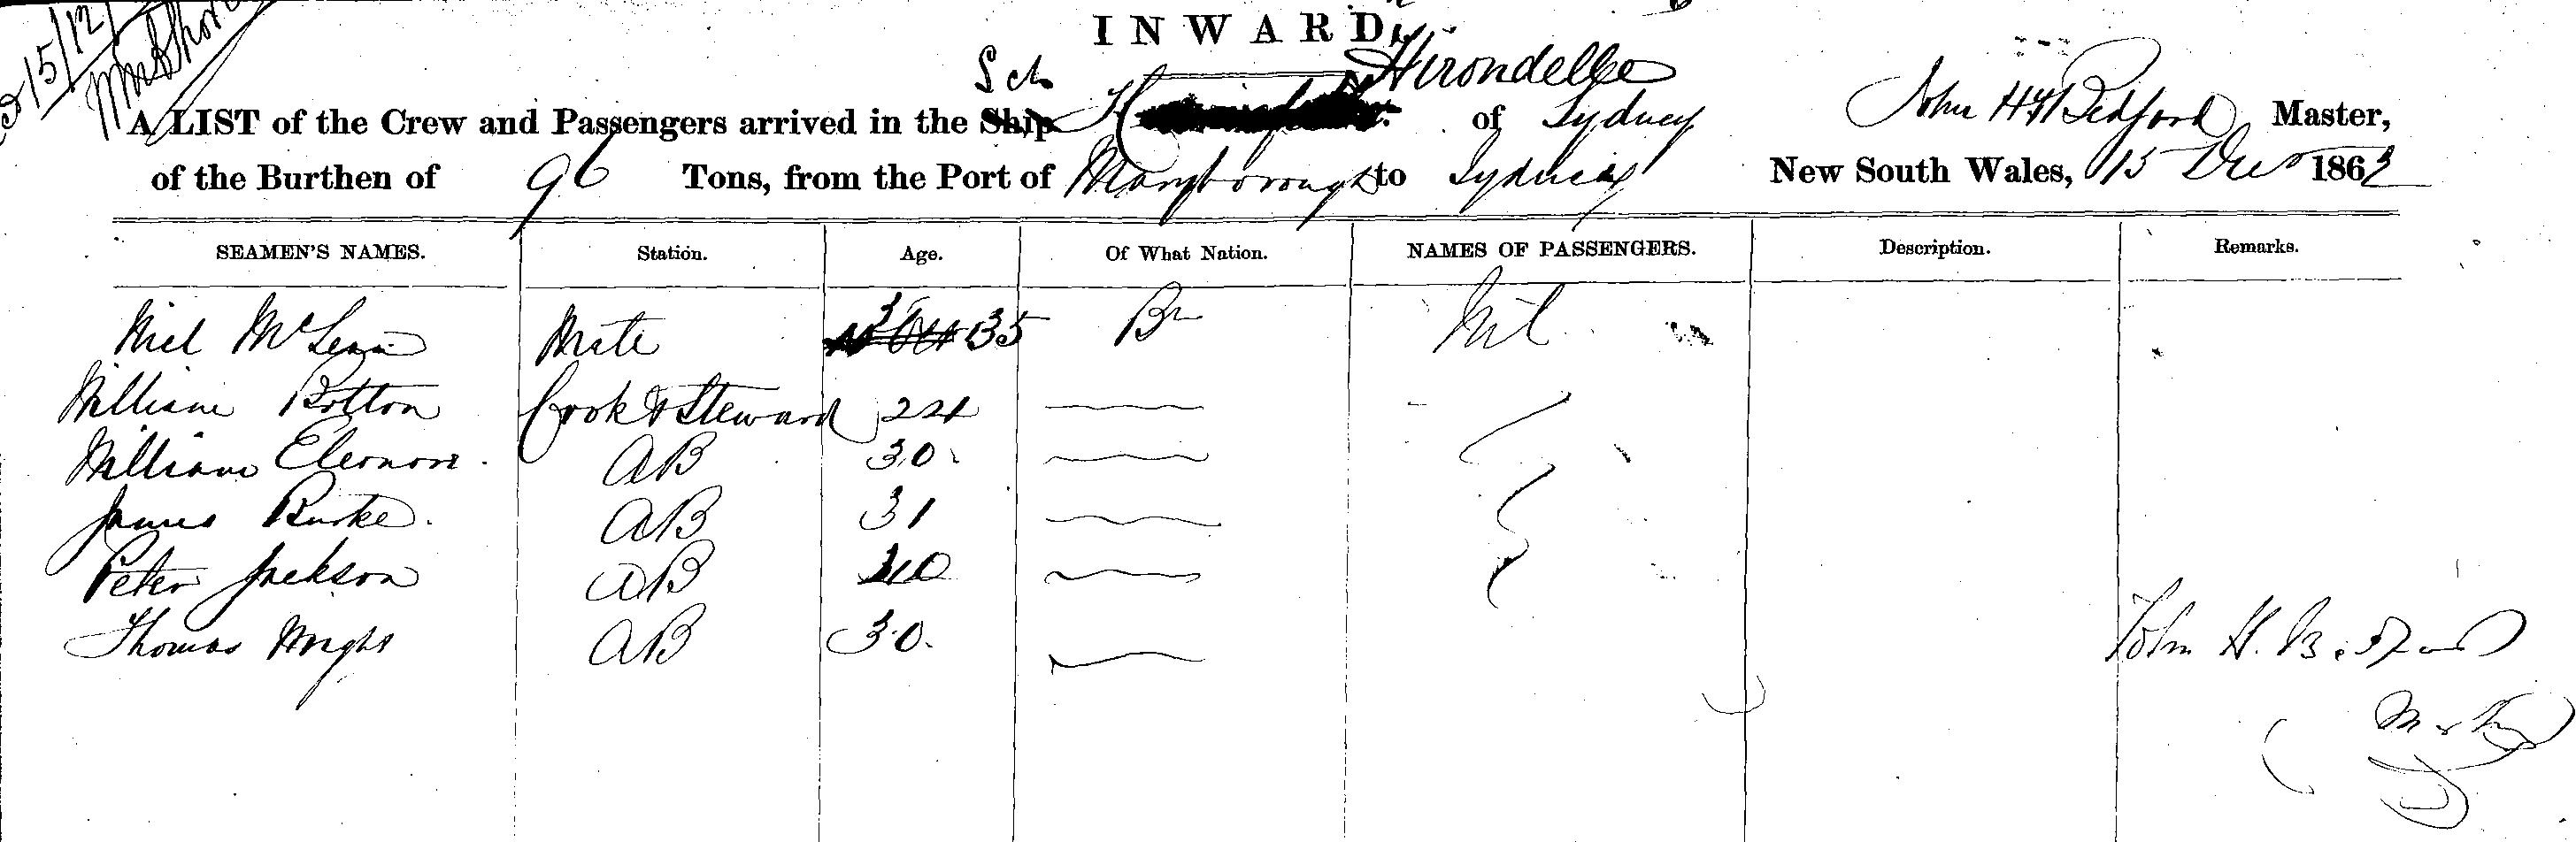 15/12/
INWARD.
Sch Hirondelle
A LIST of the Crew and Passengers arrived in the Ship of Sydney John H Bedford Master,
of the Burthen of 96 Tons, from the Port of Maryborough to Sydney New South Wales, 15 Dec 1863
SEAMEN'S NAMES. Station. Age. Of What Nation. NAMES OF PASSENGERS. Description. Remarks.
Niel McLean Mate 35 Br Nil
William Botton Cook & Steward 24
William Eleonore AB 30
James Burke. AB 31
Peter Jackson AB
Thomas Wright AB 30.
John H. Bedford
Master